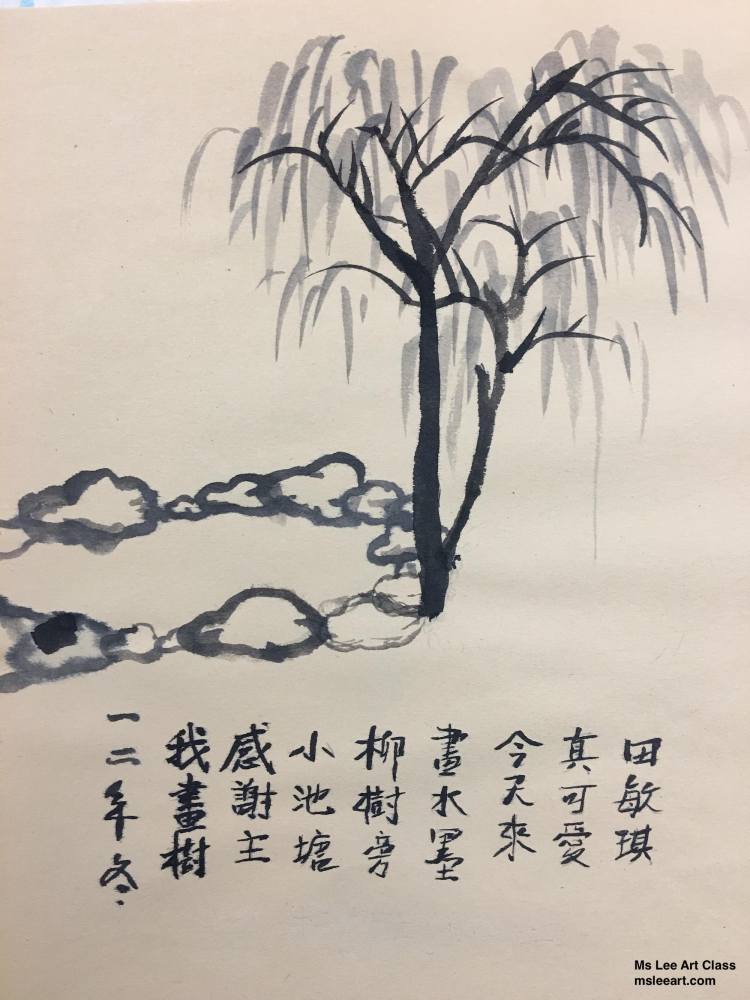 田敏琪
真可愛
今天來
畫水墨
柳樹旁
小池塘
感謝主
我畫樹
一二年冬
Ms Lee Art Class
msleeart.com